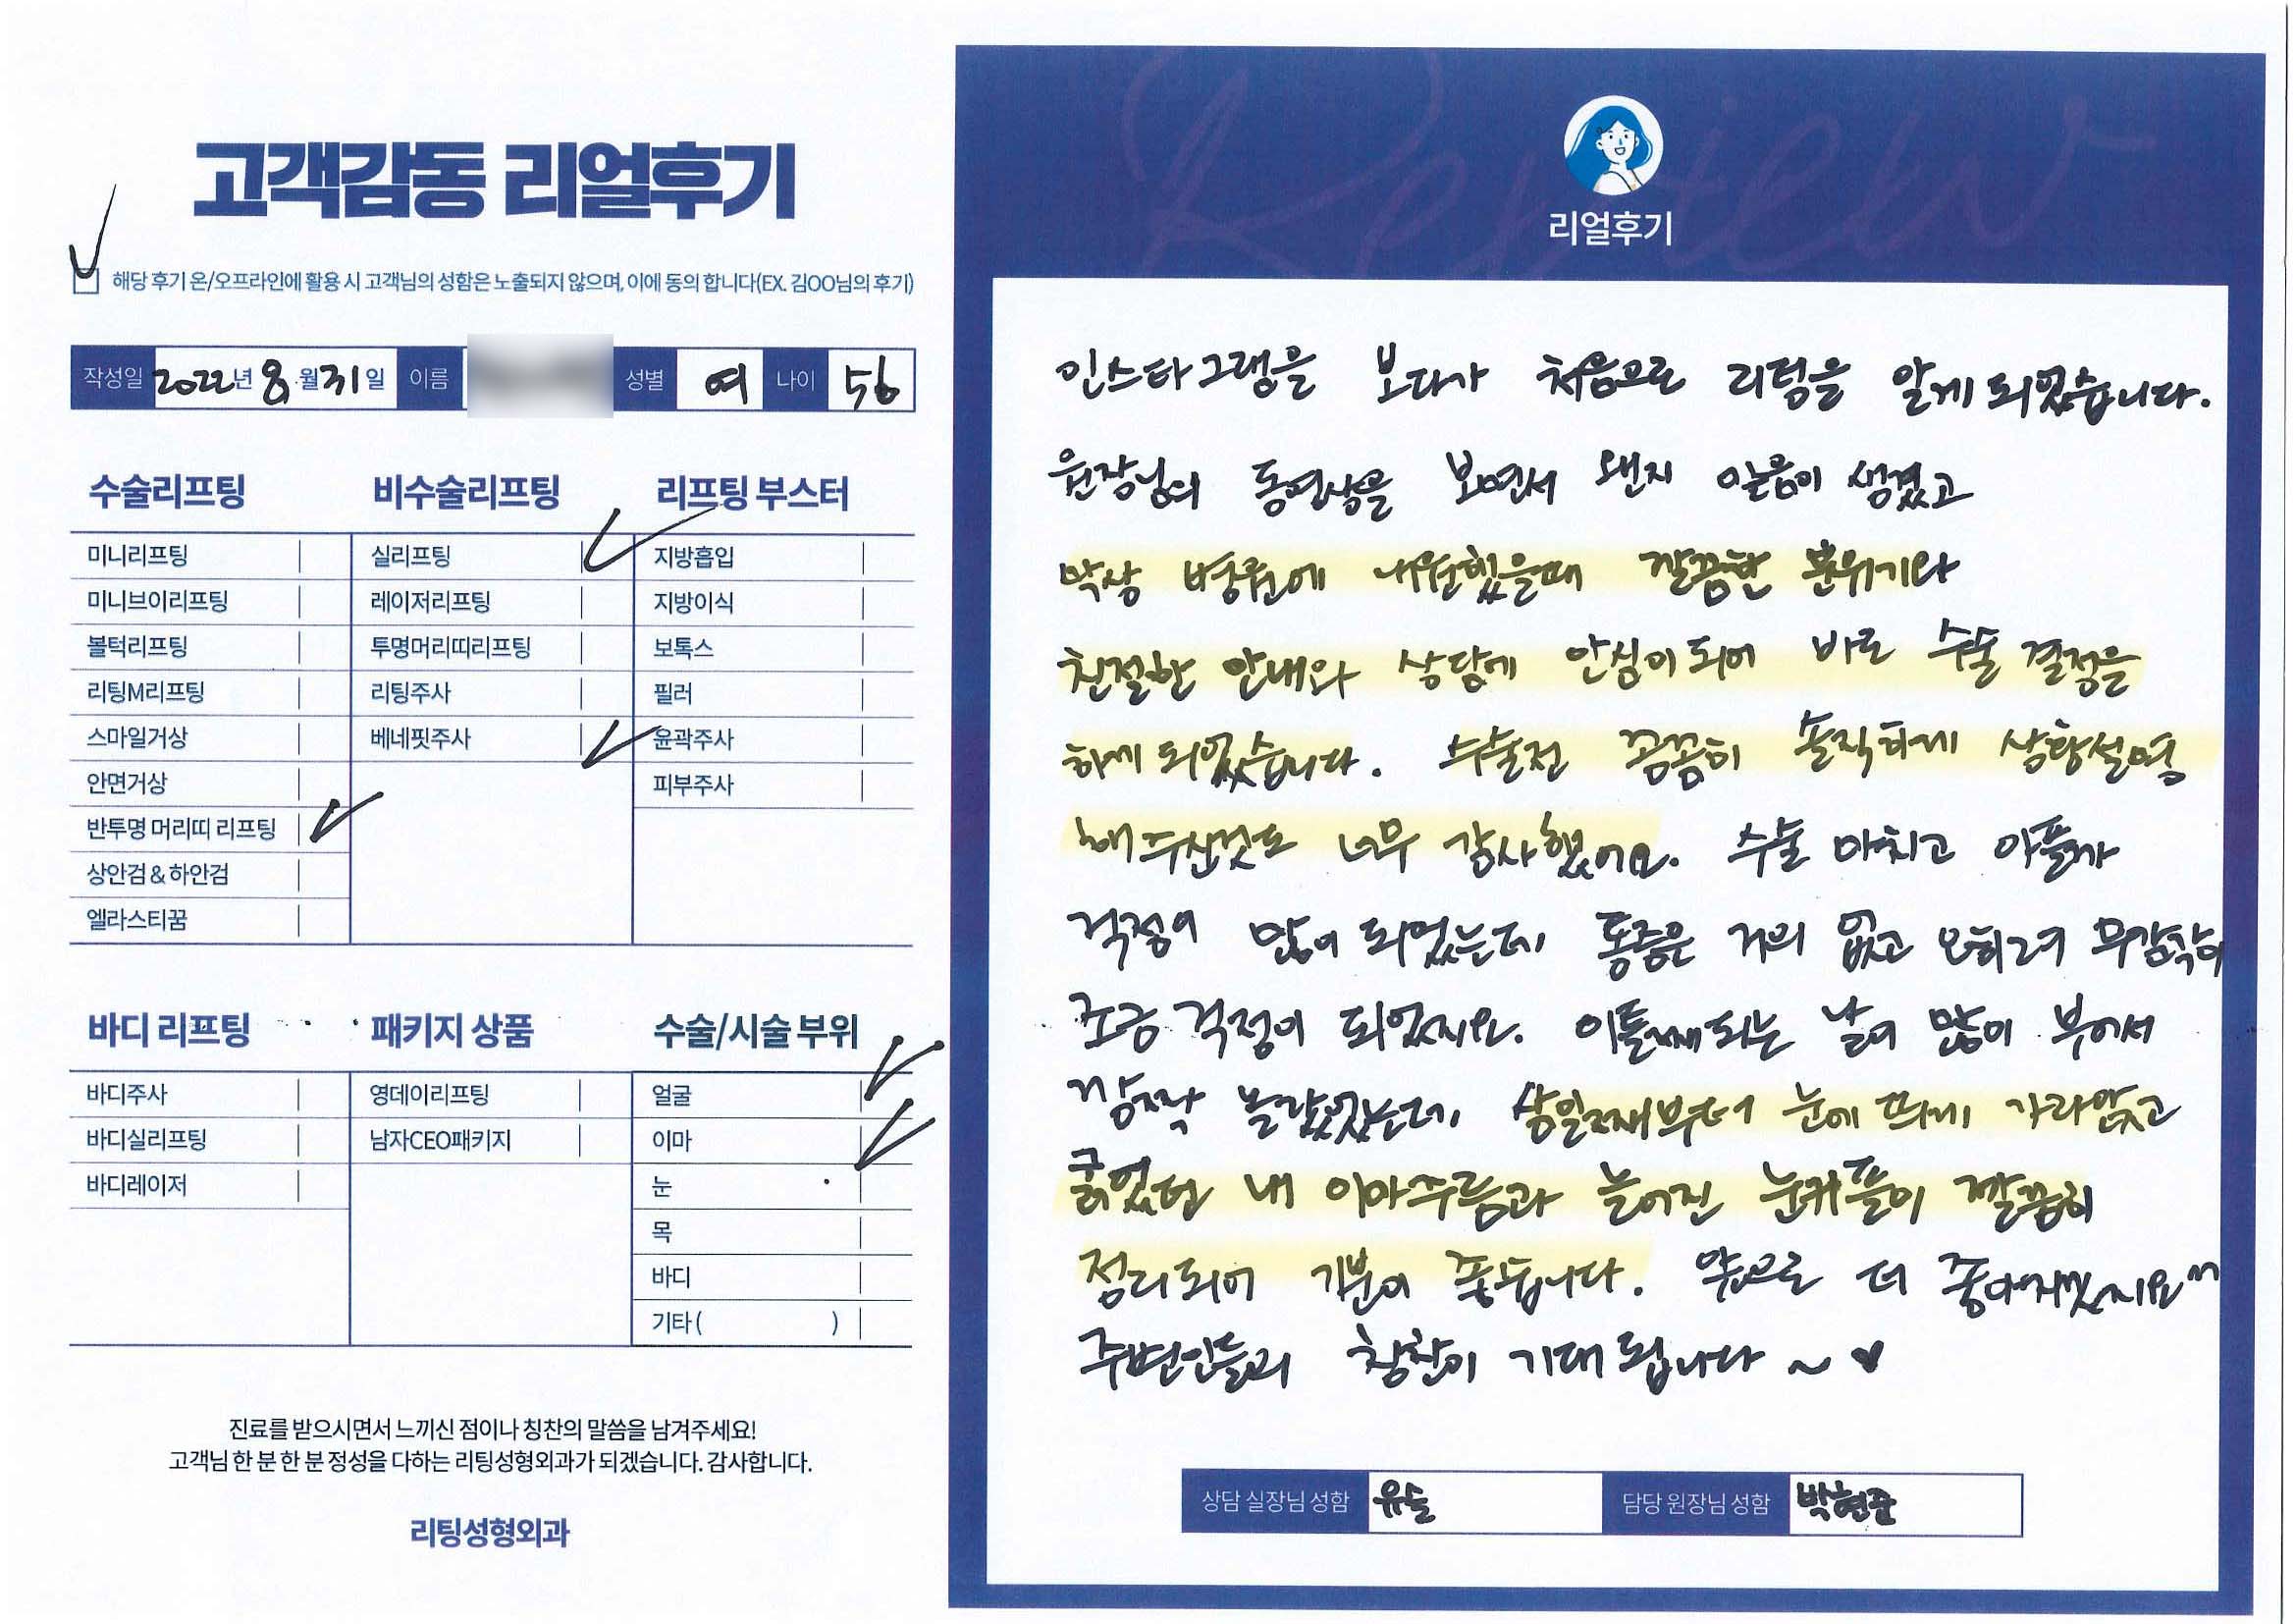 고객감동 리얼후기
해당 후기 온/오프라인에 활용 시 고객님의 성함은 노출되지 않으며, 이에 동의 합니다(EX. 김OO님의 후기)
작성일 2022년 8월 31일 이름 성별 여 나이 56
수술리프팅
미니리프팅
미니브이리프팅
볼턱리프팅
리팅M리프팅
스마일거상
안면거상
반투명 머리띠 리프팅
상안검 & 하안검
엘라스티꿈
비수술리프팅
실리프팅
레이저리프팅
투명머리띠리프팅
리팅주사
베네핏주사
리프팅 부스터
지방흡입
지방이식
보톡스
필러
윤곽주사
피부주사
바디 리프팅
바디주사
바디실리프팅
바디레이저
패키지 상품
영데이리프팅
남자CEO패키지
수술/시술 부위
얼굴
이마
눈
목
바디
기타 ( )
진료를 받으시면서 느끼신 점이나 칭찬의 말씀을 남겨주세요!
고객님 한 분 한 분 정성을 다하는 리팅성형외과가 되겠습니다. 감사합니다.
리팅성형외과
Review
리얼후기
인스타그램을 보다가 처음으로 리팅을 알게 되었습니다.
원장님의 동영상을 보면서 왠지 믿음이 생겼고
막상 병원에 내원했을때 깔끔한 분위기와
친절한 안내와 상담에 안심이 되어 바로 수술 결정을
하게 되었습니다. 수술전 꼼꼼히 솔직하게 상황설명
해주신것도 너무 감사했어요. 수술 마치고 아플까
걱정이 많이 되었는데 통증은 거의 없고 오히려 무감각이
조금 걱정이 되었지요. 이틀째되는 날이 많이 부어서
깜짝 놀랐었는데 삼일째부터 눈에 띄게 가라앉고
굵었던 내 이마주름과 늘어진 눈커플이 깔끔히
정리되어 기분이 좋습니다. 앞으로 더 좋아지겠지요^^
주변인들의 칭찬이 기대 됩니다 ~ ♥
상담 실장님 성함 유슬 담당 원장님 성함 박현준